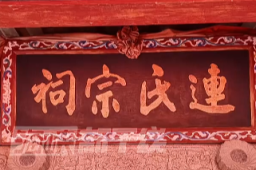 連氏宗祠